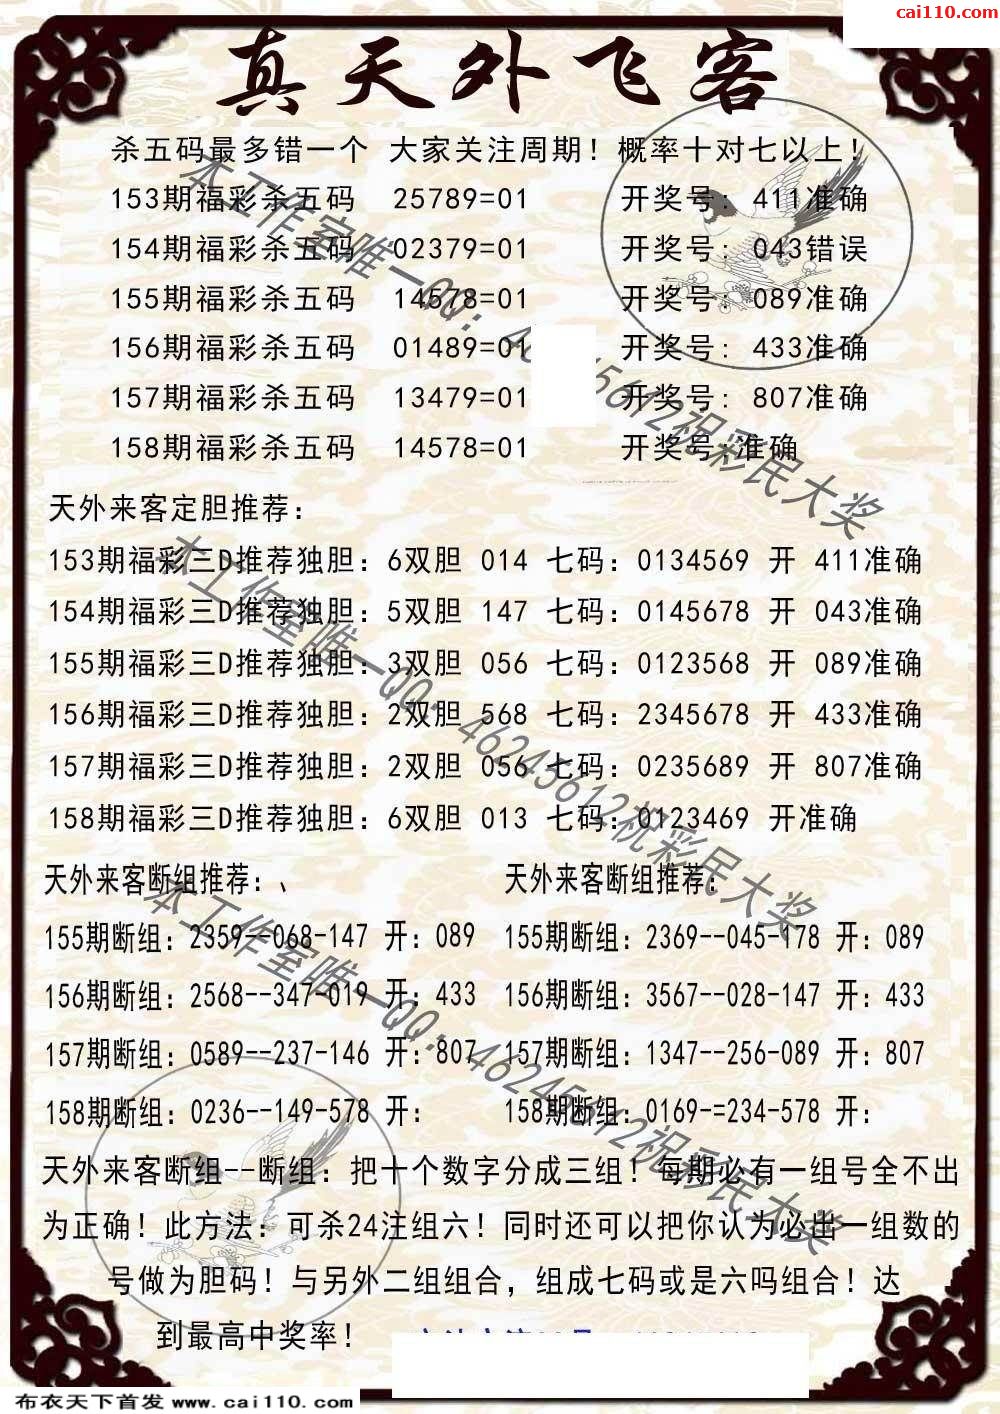 cai110.com
真天外飞客
杀五码最多错一个 大家关注周期！概率十对七以上！
153期福彩杀五码 25789=01 开奖号：411准确
154期福彩杀五码 02379=01 开奖号：043错误
155期福彩杀五码 14578=01 开奖号：089准确
156期福彩杀五码 01489=01 开奖号：433准确
157期福彩杀五码 13479=01 开奖号：807准确
158期福彩杀五码 14578=01 开奖号:准确
天外来客定胆推荐：
153期福彩三D推荐独胆：6双胆 014 七码：0134569 开 411准确
154期福彩三D推荐独胆：5双胆 147 七码：0145678 开 043准确
155期福彩三D推荐独胆：3双胆 056 七码：0123568 开 089准确
156期福彩三D推荐独胆：2双胆 568 七码：2345678 开 433准确
157期福彩三D推荐独胆：2双胆 056 七码：0235689 开 807准确
158期福彩三D推荐独胆：6双胆 013 七码：0123469 开准确
天外来客断组推荐：、 天外来客断组推荐：
155期断组：2359--068-147 开：089 155期断组：2369--045-178 开：089
156期断组：2568--347-019 开：433 156期断组：3567--028-147 开：433
157期断组：0589--237-146 开：807 157期断组：1347--256-089 开：807
158期断组：0236--149-578 开： 158期断组：0169-=234-578 开：
天外来客断组--断组：把十个数字分成三组！每期必有一组号全不出
为正确！此方法：可杀24注组六！同时还可以把你认为必出一组数的
号做为胆码！与另外二组组合，组成七码或是六吗组合！达
到最高中奖率！
本工作室唯一QQ：46245612祝彩民大奖
本工作室唯一QQ：46245612祝彩民大奖
本工作室唯一QQ：46245612祝彩民大奖
布衣天下首发 www.cai110.com